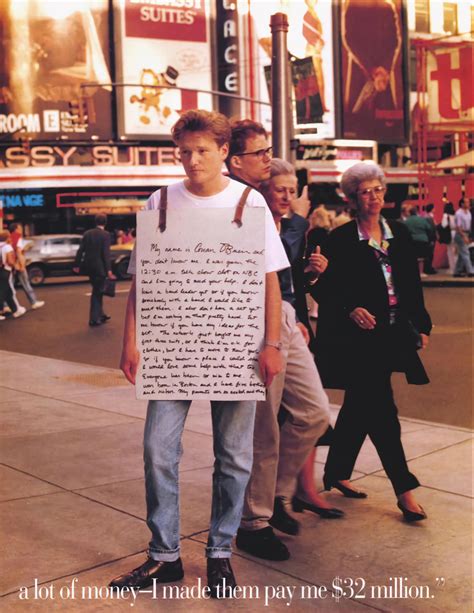 SUITES"
ROOM E
SSY SUITES
My name is Conan O'Brien and
you don't know me. I was given the
12:30 a.m. talk show slot on NBC
and I'm going to need your help. I don't
have a band leader yet so if you know
somebody with a band I would like to
meet them. I also don't have a set yet
but I'm working on that pretty hard. Let
me know if you have any ideas for the
set. The network just bought me my
first three suits, so I think I'm set for
clothes, but I have to move to
so if you know a place I could
I would love some help with that too.
Everyone has been so nice to me. I
was born in Boston and I have five brothers
and sisters. My parents are so excited and they
a lot of money–I made them pay me $32 million."